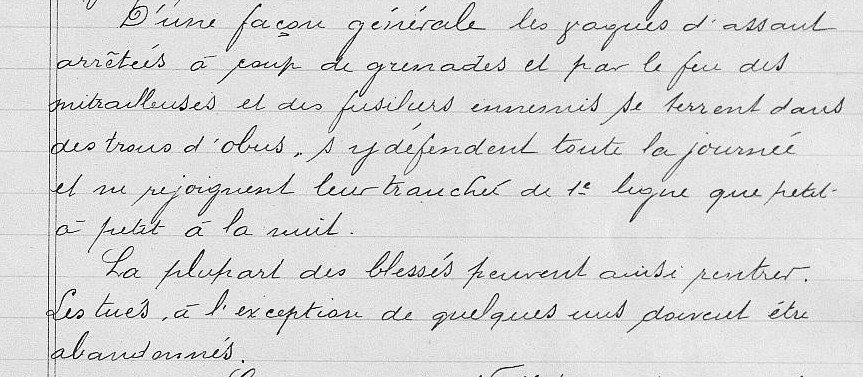 D'une façon générale les vagues d'assaut
arrêtées à coup de grenades et par le feu des
mitrailleuses et des fusiliers ennemis se terrent dans
des trous d'obus, s'y défendent toute la journée
et ne rejoignent leur tranchée de 1e ligne que petit-
à petit à la nuit.
La plupart des blessés peuvent ainsi rentrer.
Les tués, à l'exception de quelques uns doivent être
abandonnés.